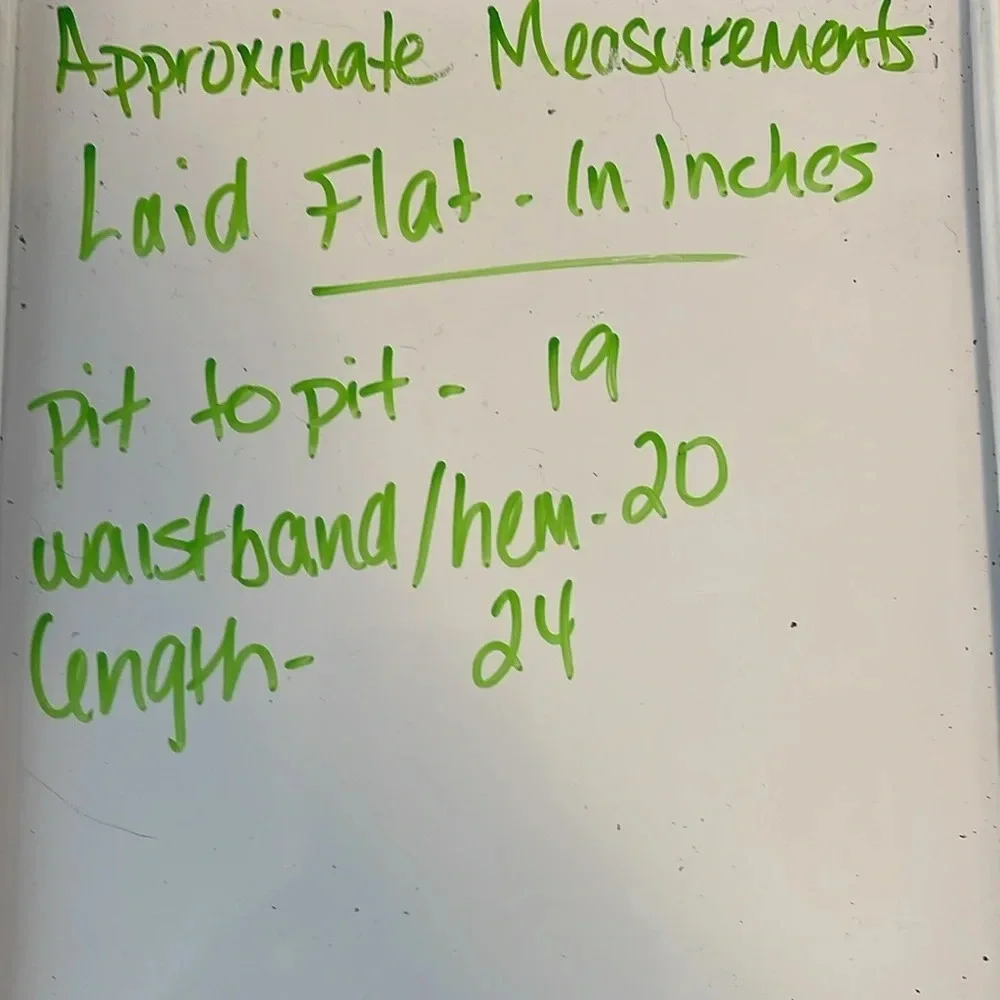 Approximate Measurements
Laid Flat. In Inches
pit to pit - 19
waistband/hem. 20
length- 24